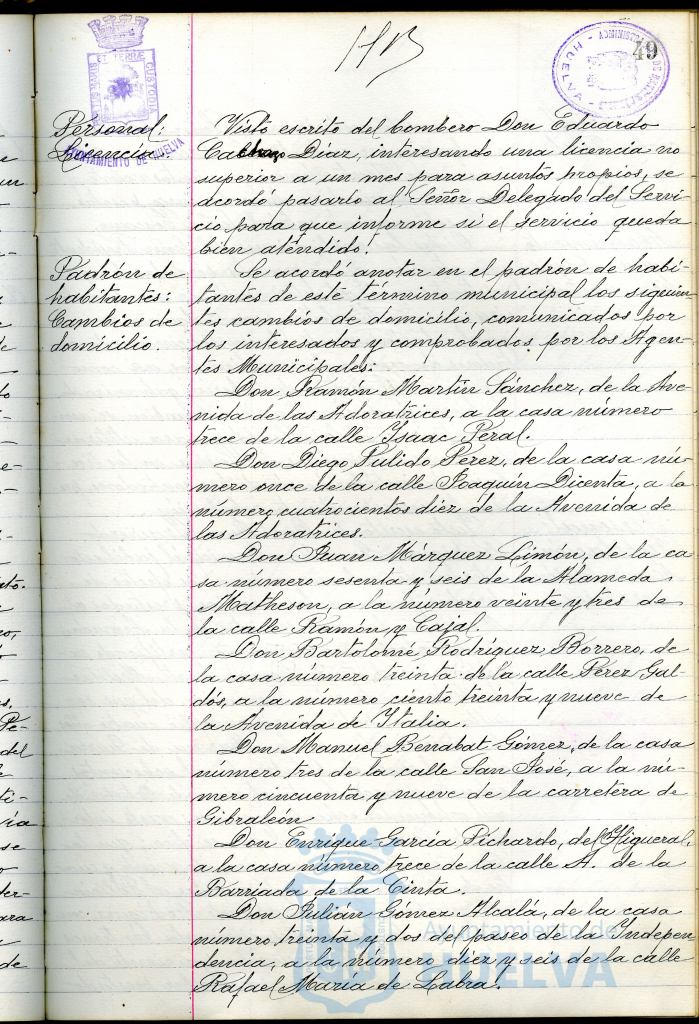 49
HUELVA
AYUNTAMIENTO DE HUELVA
Personal:
Licencia.
Visto escrito del bombero Don Eduardo
Díaz, interesando una licencia no
superior a un mes para asuntos propios, se
acordó pasarlo al Señor Delegado del Servi-
cio para que informe si el servicio queda
bien atendido.
Padrón de
habitantes:
Cambios de
domicilio.
Se acordó anotar en el padrón de habi-
tantes de este término municipal los siguien-
tes cambios de domicilio, comunicados por
los interesados y comprobados por los Agen-
tes Municipales:
Don Ramón Martín Sánchez, de la Ave-
nida de las Adoratrices, a la casa número
trece de la calle Isaac Peral.
Don Diego Pulido Pérez, de la casa nú-
mero once de la calle Joaquín Dicenta, a la
número cuatrocientos diez de la Avenida de
las Adoratrices.
Don Juan Márquez Limón, de la ca-
sa número sesenta y seis de la Alameda
Matheson, a la número veinte y tres de
la calle Ramón y Cajal.
Don Bartolomé Rodríguez Borrero, de
la casa número treinta de la calle Pérez Gal-
dós, a la número ciento treinta y nueve de
la Avenida de Italia.
Don Manuel Benabat Gómez, de la casa
número tres de la calle San José, a la nú-
mero cincuenta y nueve de la carretera de
Gibraleón
Don Enrique García Pichardo, del Higueral,
a la casa número trece de la calle A. de la
Barriada de la Cinta.
Don Julián Gómez Alcalá, de la casa
número treinta y dos del paseo de la Indepen
dencia, a la número diez y seis de la calle
Rafael María de Labra.
Ayuntamiento de
HUELVA